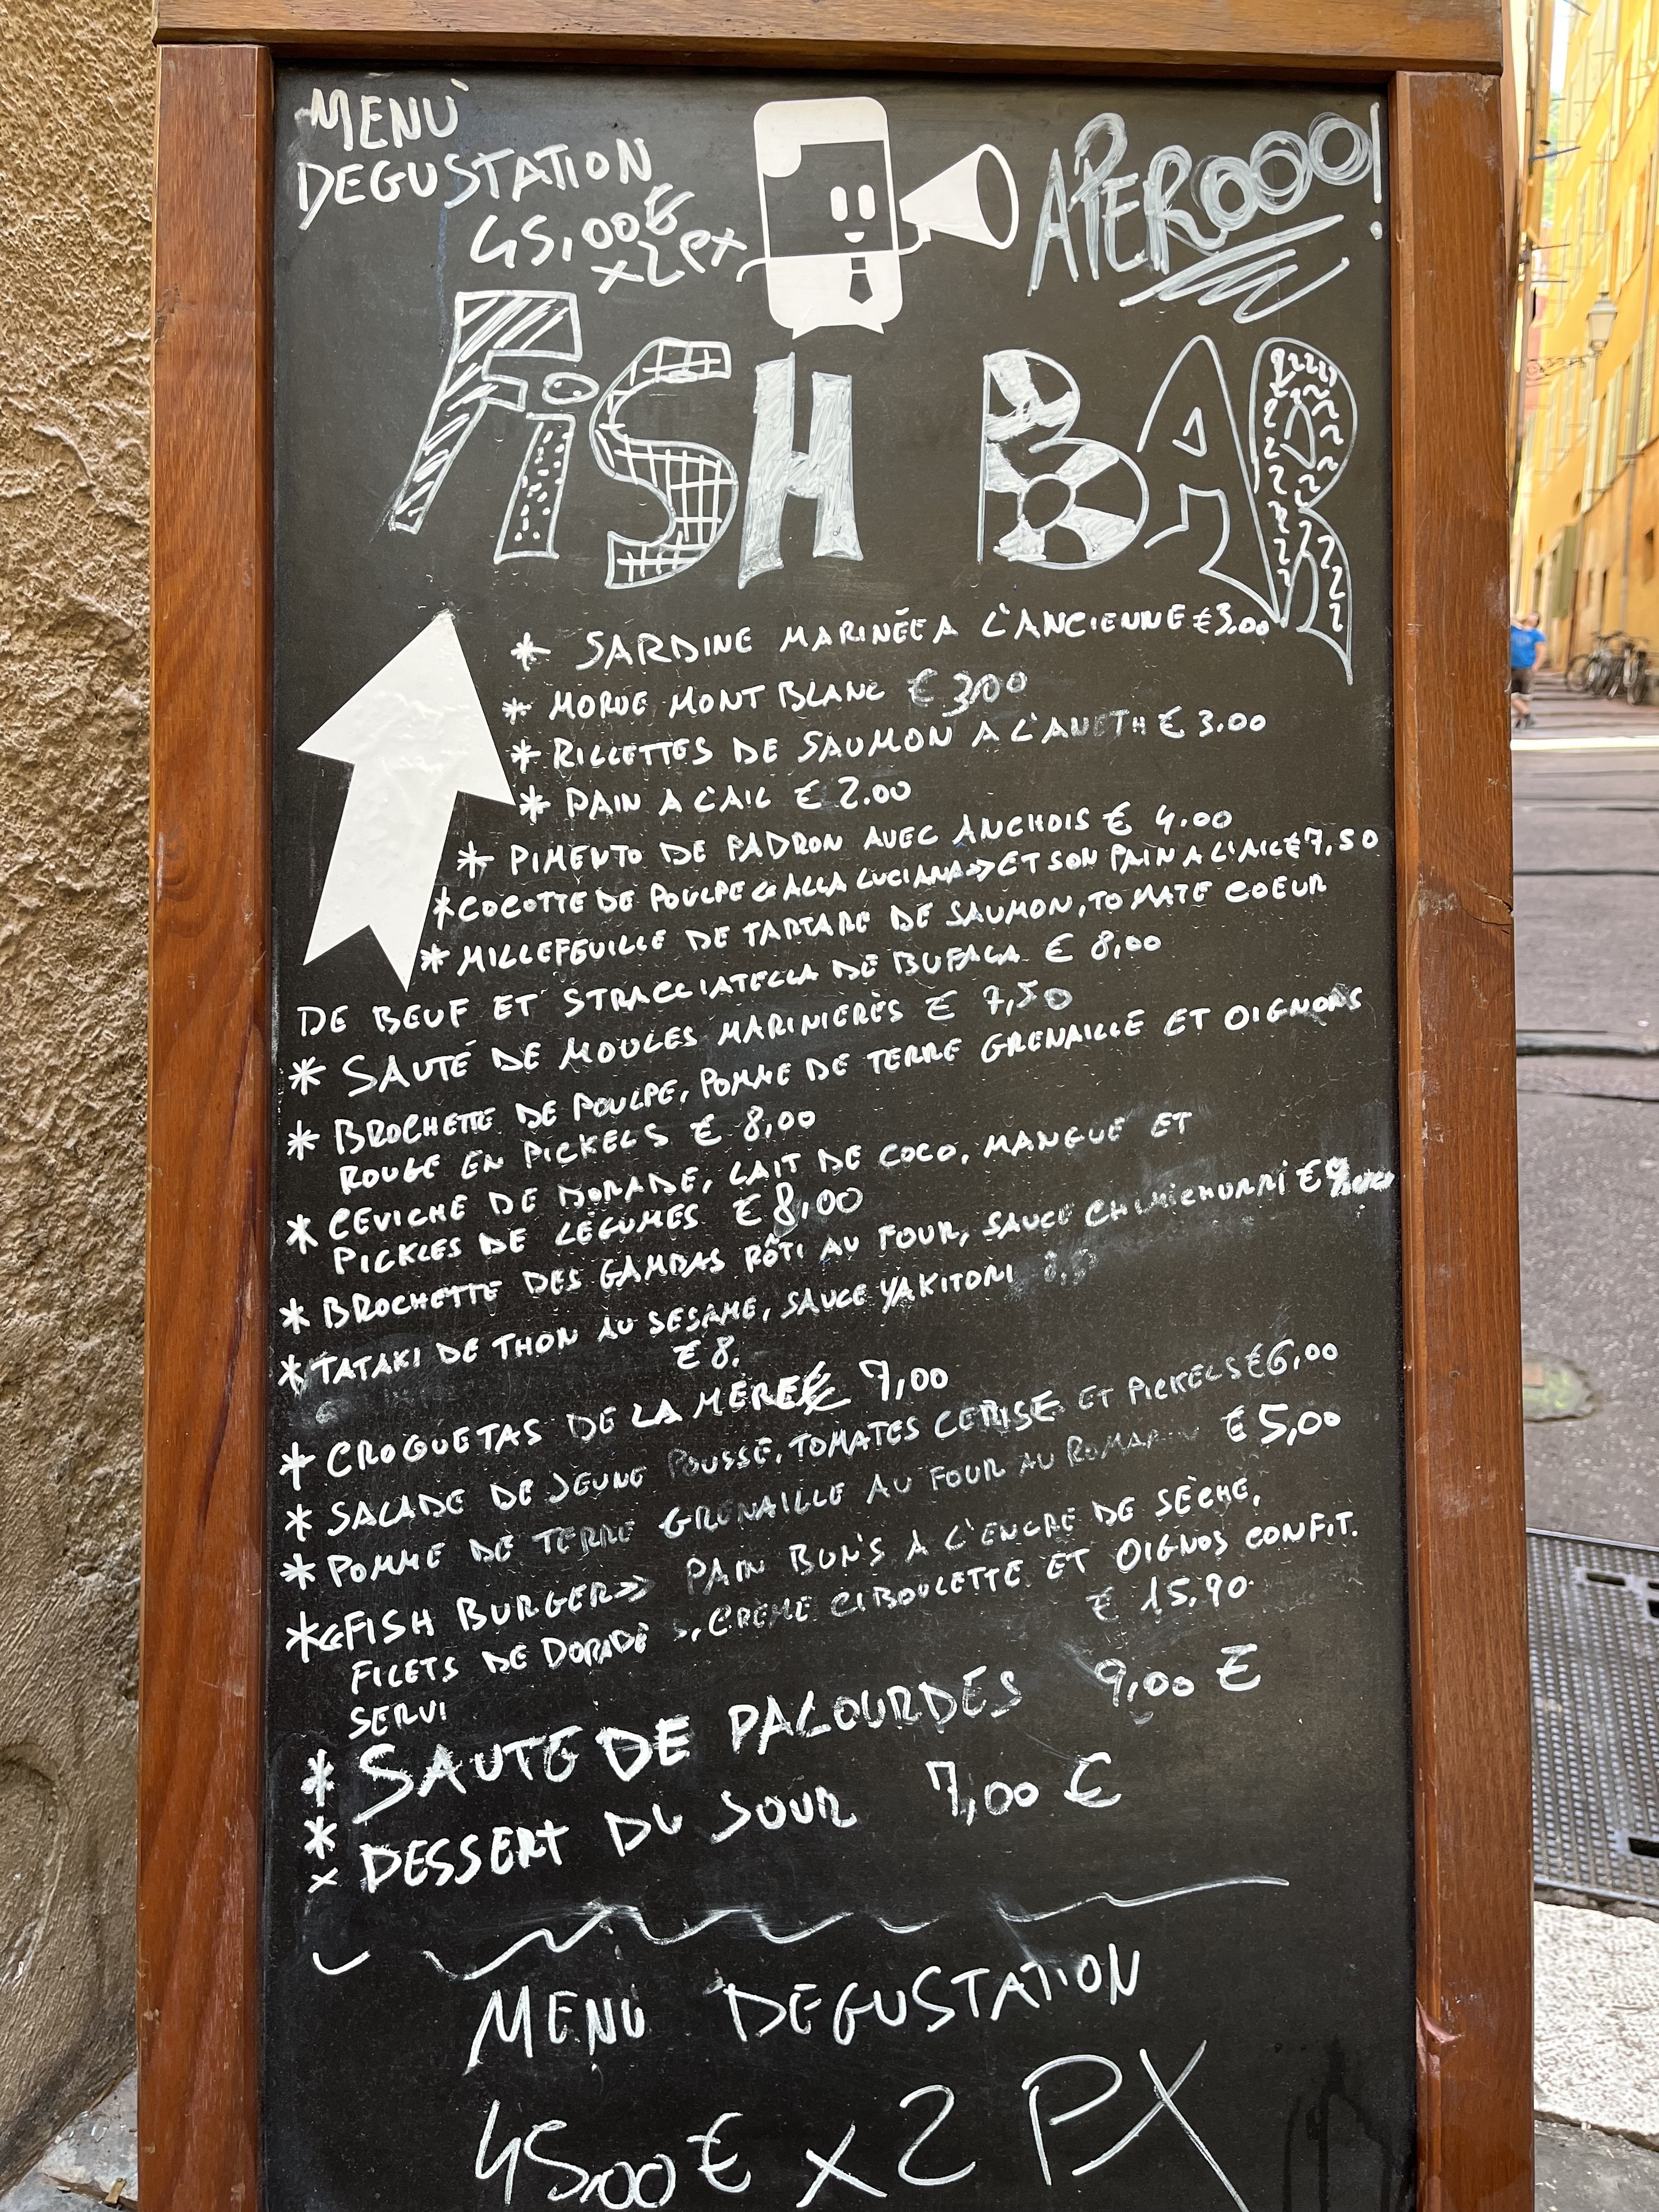 MENÙ
DEGUSTATION
45,00€
x2 PX
APEROOOO!
FiSH BAR
* SARDINE MARINÉE A L'ANCIENNE € 3.00
* MORUE MONT BLANC € 3,00
* RILLETTES DE SAUMON A L'ANETH € 3.00
* PAIN A L'AIL € 2.00
* PIMENTO DE PADRON AVEC ANCHOIS € 4.00
* COCOTTE DE POULPE « ALLA LUCIANA » ET SON PAIN A L'AIL € 7,50
* MILLEFEUILLE DE TARTARE DE SAUMON, TOMATE COEUR
DE BEUF ET STRACCIATELLA DE BUFALA € 8,00
* SAUTÉ DE MOULES MARINIERÈS € 7,50
* BROCHETTE DE POULPE, POMME DE TERRE GRENAILLE ET OIGNONS
ROUGE EN PICKELS € 8,00
* CEVICHE DE DORADE, LAIT DE COCO, MANGUE ET
PICKLES DE LEGUMES € 8,00
* BROCHETTE DES GAMBAS RÔTI AU FOUR, SAUCE CHIMICHURRI € 9,00
* TATAKI DE THON AU SESAME, SAUCE YAKITORI
€ 8.
* CROQUETAS DE LA MERE € 7,00
* SALADE DE JEUNE POUSSE, TOMATES CERISE ET PICKELS € 6,00
* POMME DE TERRE GRENAILLE AU FOUR AU ROMARIN € 5,00
* «FISH BURGER» PAIN BUN'S À L'ENCRE DE SÈCHE,
FILETS DE DORADE, CRÈME CIBOULETTE ET OIGNOS CONFIT.
SERVI € 15,90
* SAUTE DE PALOURDES 9,00 €
* DESSERT DU JOUR 7,00 €
MENÙ DEGUSTATION
45,00 € x 2 PX